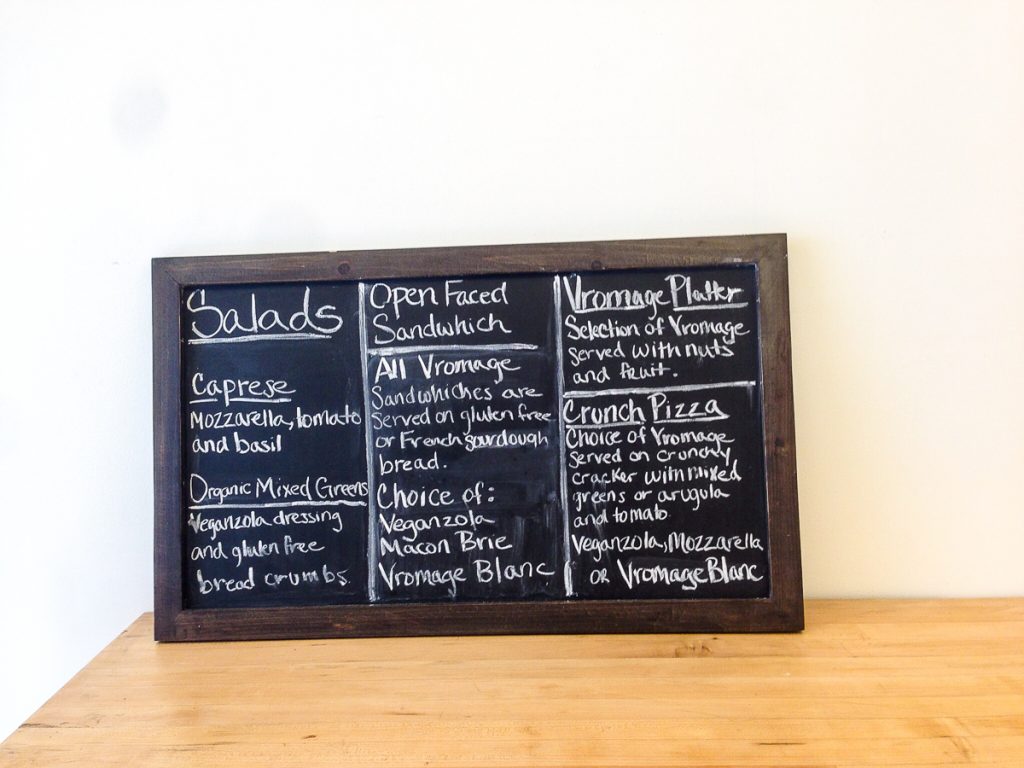 Salads
Caprese
Mozzarella, tomato
and basil
Organic Mixed Greens
Veganzola dressing
and gluten free
bread crumbs.
Open Faced
Sandwhich
All Vromage
Sandwhiches are
served on gluten free
or French sourdough
bread.
Choice of:
Veganzola
Macon Brie
Vromage Blanc
Vromage Platter
Selection of Vromage
served with nuts
and fruit.
Crunch Pizza
Choice of Vromage
served on crunchy
cracker with mixed
greens or arugula
and tomato
Veganzola, Mozzarella
or Vromage Blanc